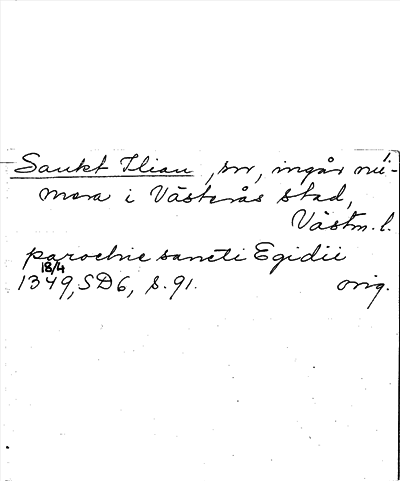 Sankt Ilian, sn, ingår nu-
mera i Västerås stad,
Västm. l.
parochie sancti Egidii
18/4
1349, SD6, s. 91. orig.